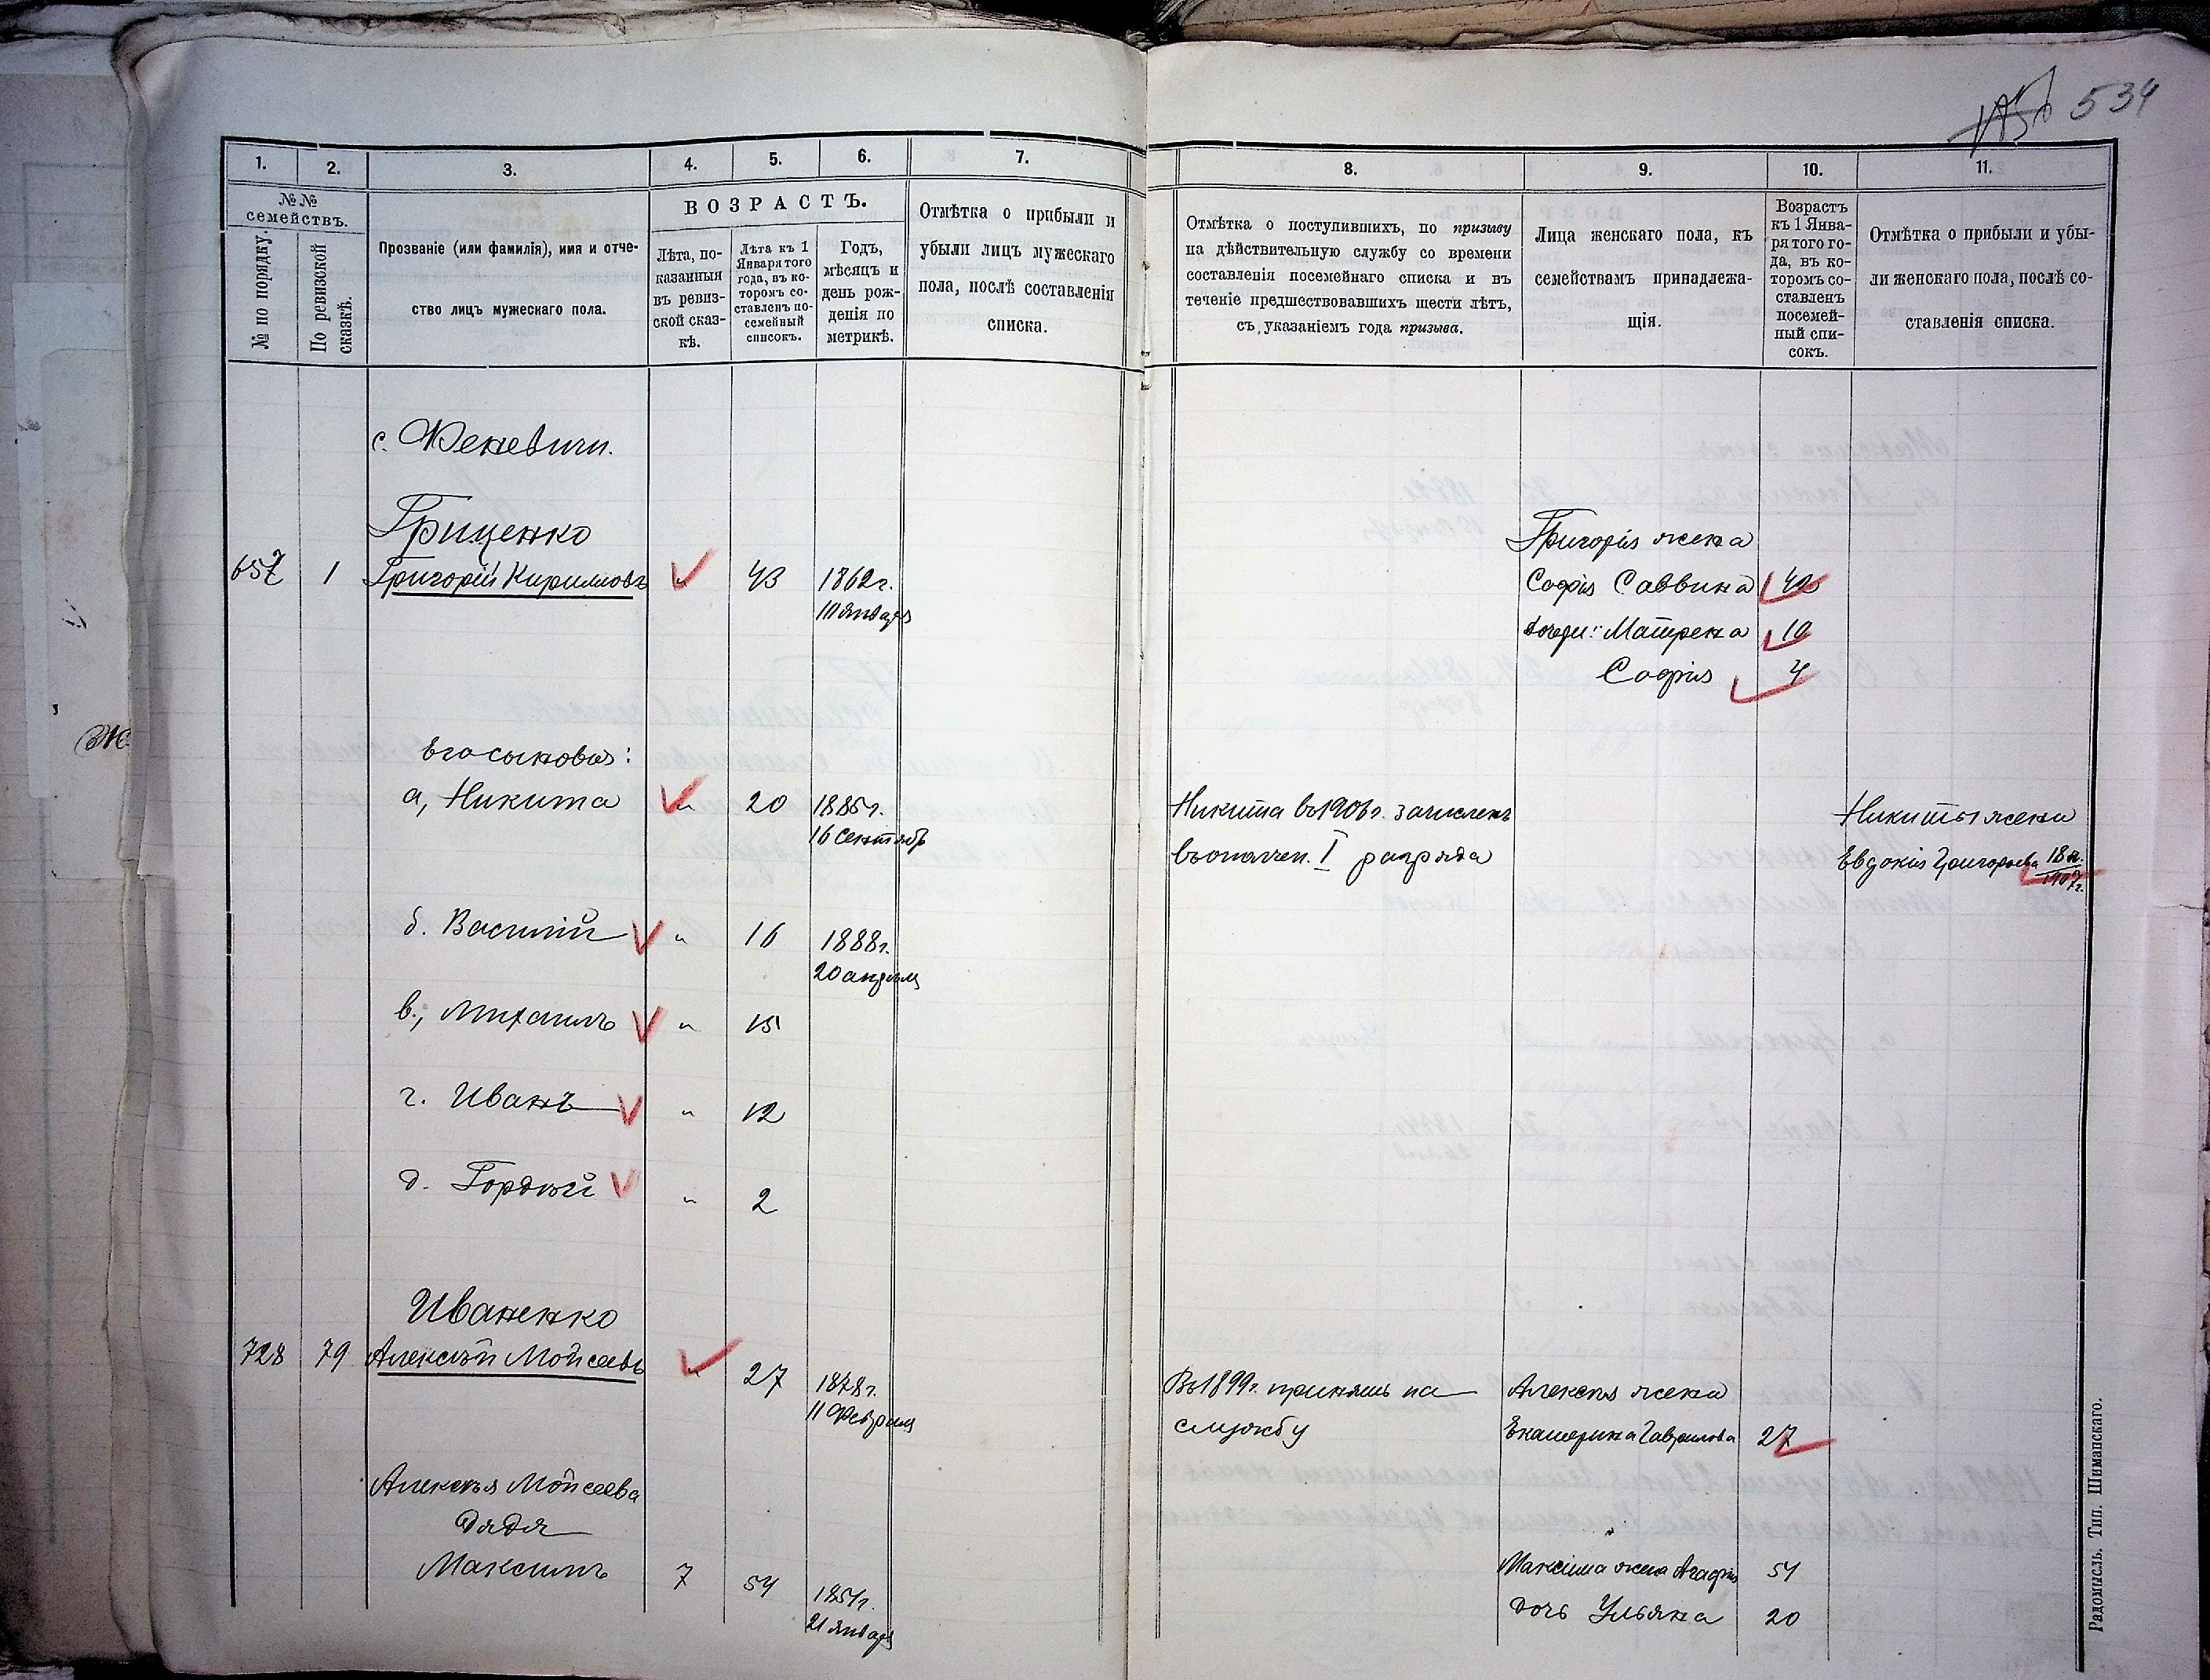 534
1.
2.
3.
4.
5.
6.
7.
8.
9.
10.
11.
№№
семействъ.
№ по порядку.
По ревизской
сказкѣ.
Прозваніе (или фамилія), имя и отче-
ство лицъ мужескаго пола.
ВОЗРАСТЪ.
Лѣта, по-
казанныя
въ ревиз-
ской сказ-
кѣ.
Лѣта къ 1
Января того
года, въ ко-
торомъ со-
ставленъ по-
семейный
списокъ.
Годъ,
мѣсяцъ и
день рож-
денія по
метрикѣ.
Отмѣтка о прибыли и
убыли лицъ мужескаго
пола, послѣ составленія
списка.
Отмѣтка о поступившихъ, по призыву
на дѣйствительную службу со времени
составленія посемейнаго списка и въ
теченіе предшествовавшихъ шести лѣтъ,
съ указаніемъ года призыва.
Лица женскаго пола, къ
семействамъ принадлежа-
щія.
Возрастъ
къ 1 Янва-
ря того го-
да, въ ко-
торомъ со-
ставленъ
посемей-
ный спи-
сокъ.
Отмѣтка о прибыли и убы-
ли женскаго пола, послѣ со-
ставленія списка.
с. Феневичи.
Гриценко
657 1 Григорій Кириловъ 43 1862г.
Января
Григорія жена
Софія Саввина 42
дочери: Матрена 10
Софія 4
Его сыновья:
а, Никита „ 20 1885г.
16 Сентябр
Никита въ 1906г. зачисленъ
въ ополчен. I разряда
Никиты жена
Евдокія Григорьева 18 л.
1907г.
б. Василій „ 16 1888г.
20 апрѣля
в., Михаилъ „ 15
г. Иванъ „ 12
д. Гордѣй „ 2
Иваненко
728 79 Алексѣй Мойсеевъ „ 27 1878г.
11 Февраля
Въ 1899г. принятъ на
службу
Алексѣя жена
Екатерина Гаврилова 27
Алексѣя Мойсеева
дядя
Максимъ 7 54 1851г.
21 Января
Максима жена Агафія 51
дочь Ульяна 20
Радомысль. Тип. Шиманскаго.